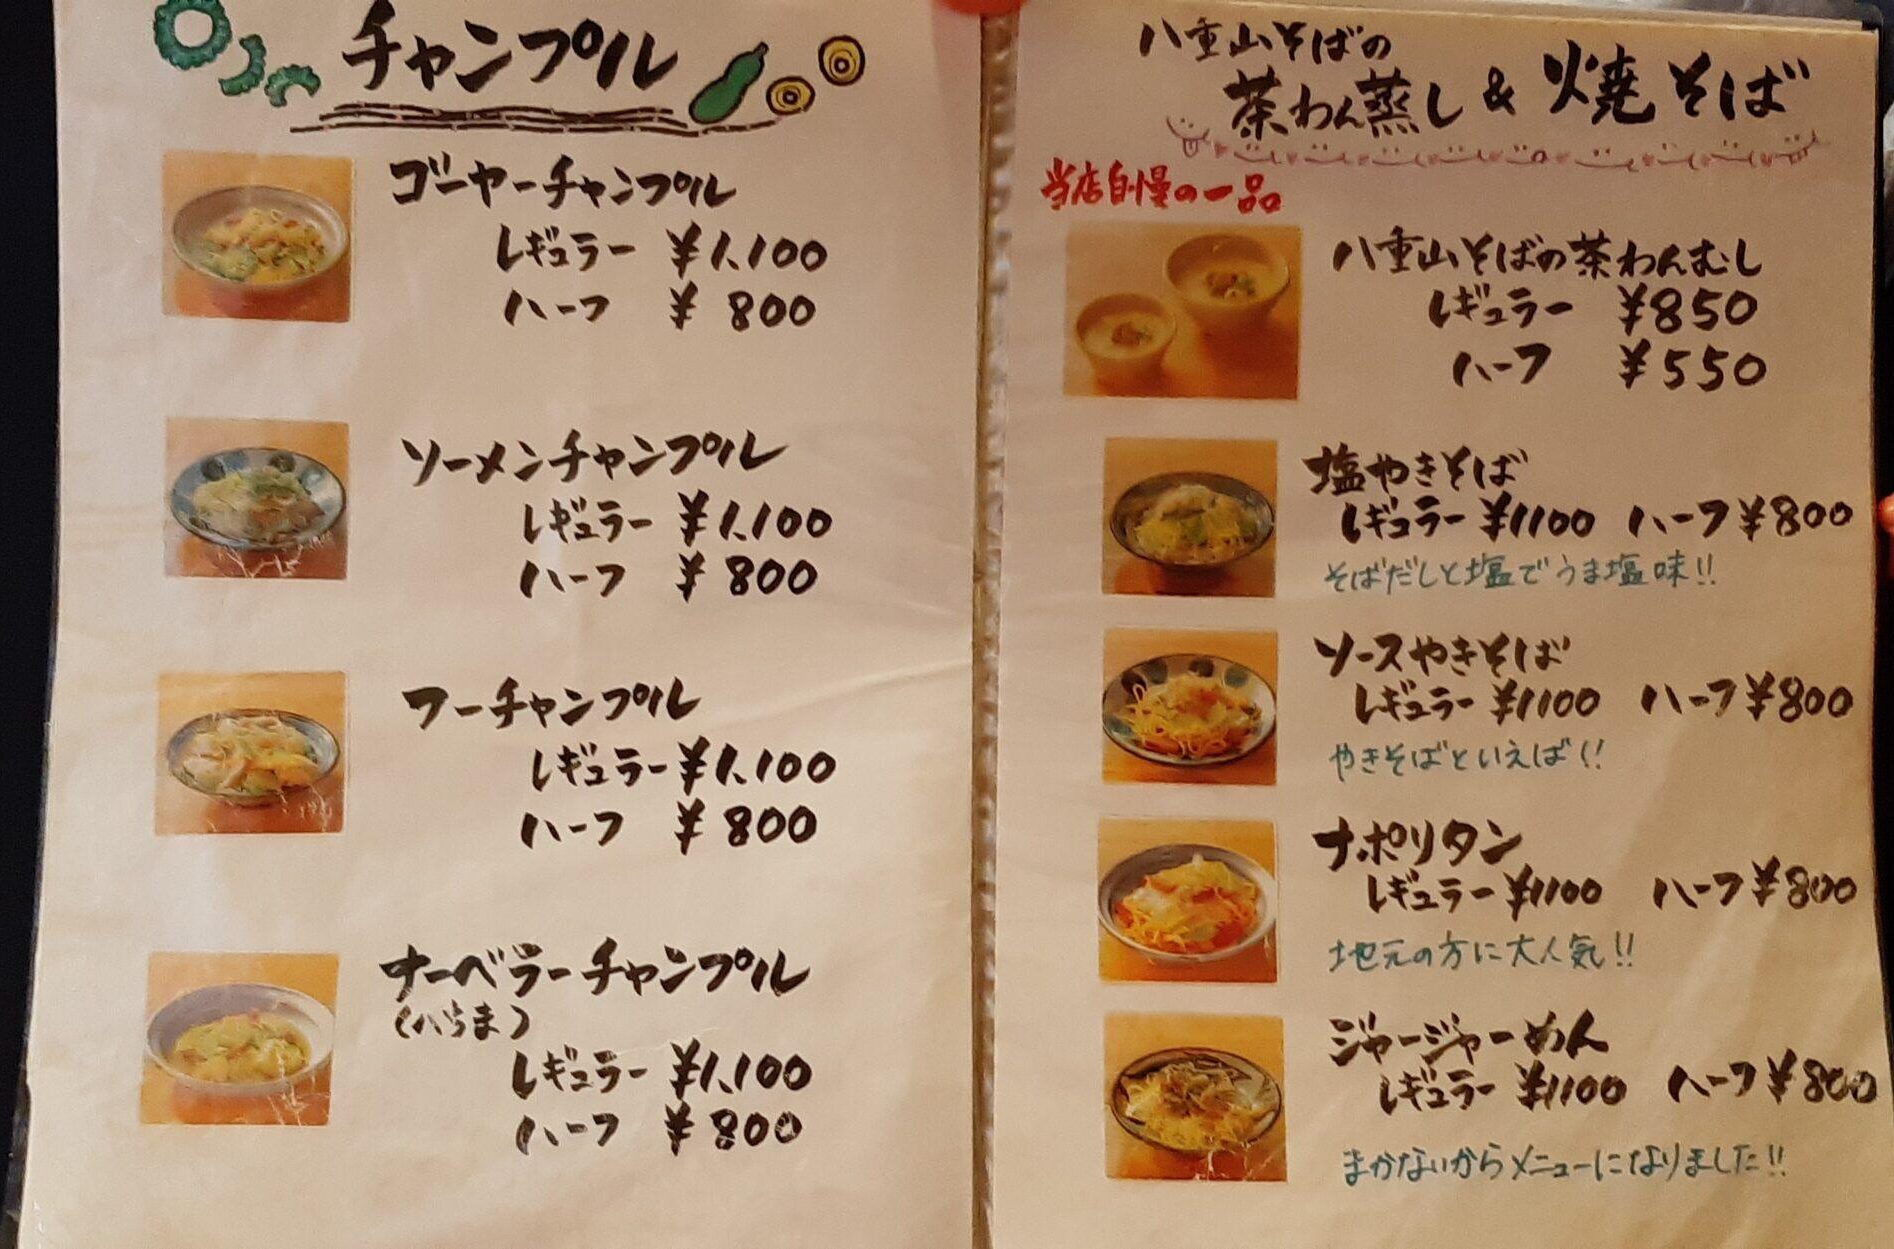 チャンプル
ゴーヤーチャンプル
レギュラー ¥1,100
ハーフ ¥800
ソーメンチャンプル
レギュラー ¥1,100
ハーフ ¥800
フーチャンプル
レギュラー ¥1,100
ハーフ ¥800
ナーベラーチャンプル
(へちま)
レギュラー ¥1,100
ハーフ ¥800
八重山そばの
茶わん蒸し & 焼そば
当店自慢の一品
八重山そばの茶わんむし
レギュラー ¥850
ハーフ ¥550
塩やきそば
レギュラー ¥1100 ハーフ ¥800
そばだしと塩でうま塩味!!
ソースやきそば
レギュラー ¥1100 ハーフ ¥800
やきそばといえば!!
ナポリタン
レギュラー ¥1100 ハーフ ¥800
地元の方に大人気!!
ジャージャーめん
レギュラー ¥1100 ハーフ ¥800
まかないからメニューになりました!!